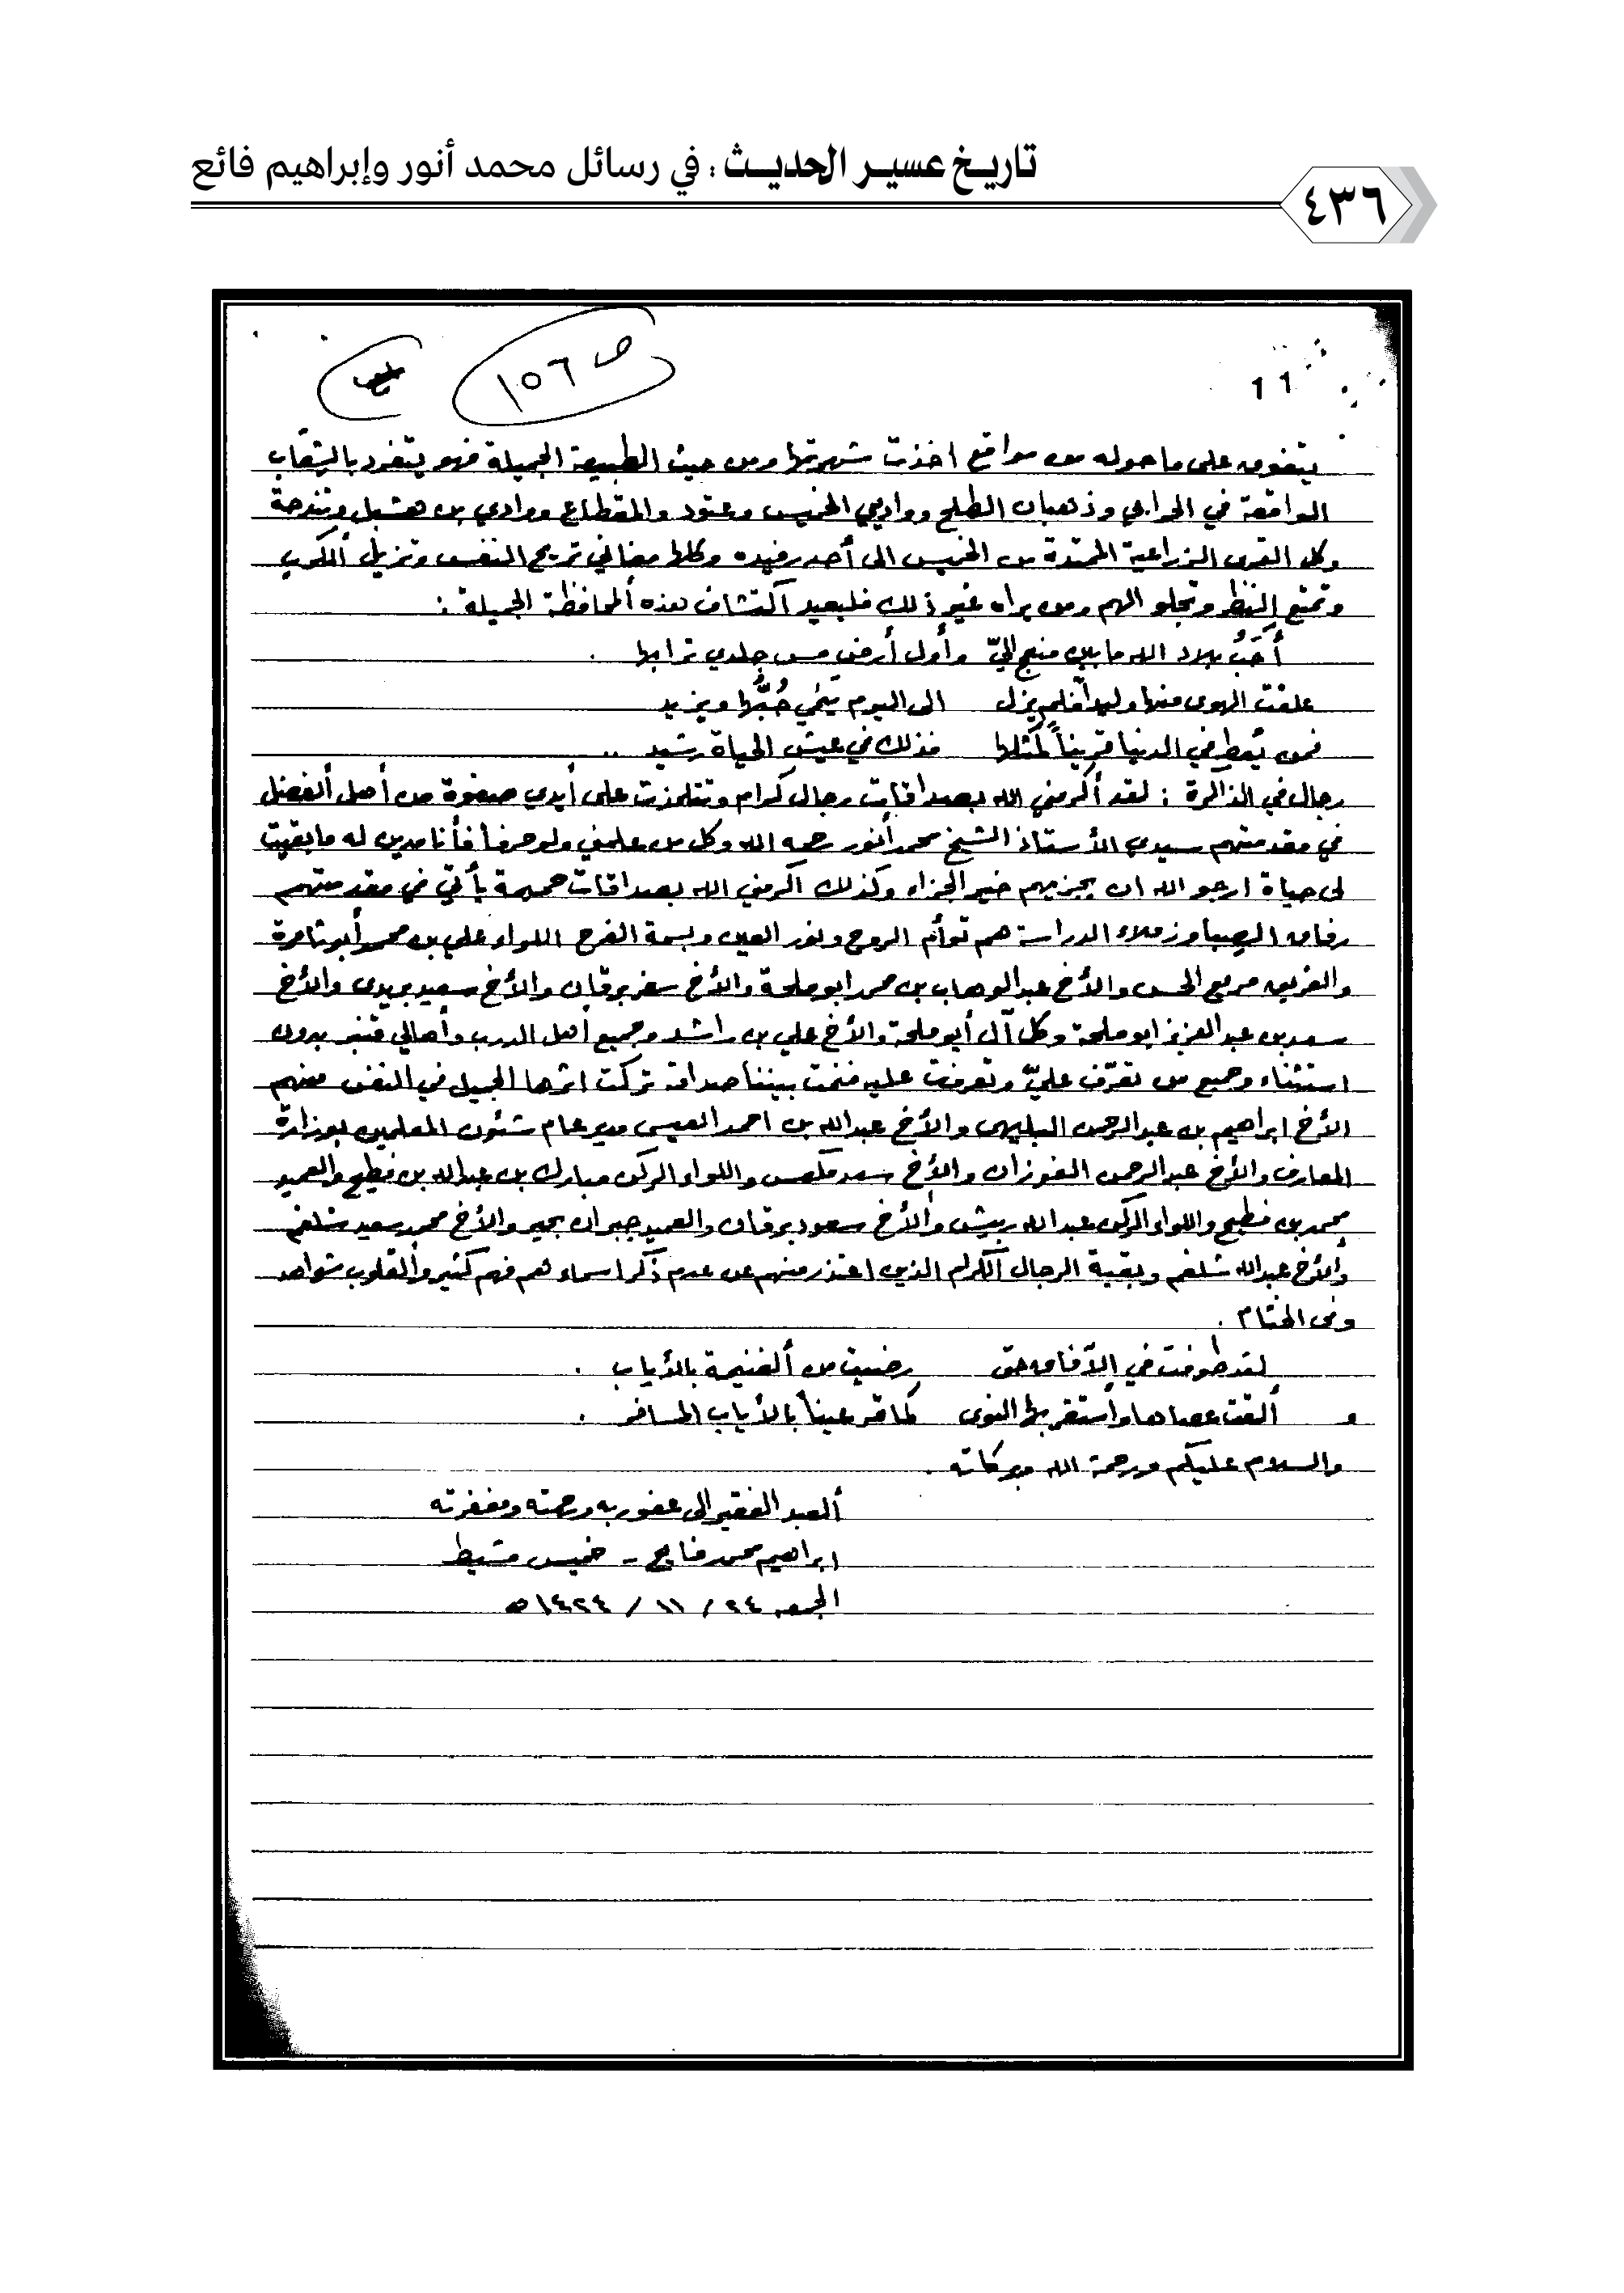 تاريخ عسير الحديث : في رسائل محمد أنور وإبراهيم فائع
٤٣٦
ص ١٥٦
11
يتفوق على ماحوله من مواقع اخذت شهرتها ومن حيث الطبيعة الجميلة فهو يتفرد بالشعاب
الواقعة في الحوابي وذهبان الطلح ووادي الخميس وعتود والمقطاع ووادي بن هشبل وتندحة
وكل القرى الزراعية الممتدة من الخميس الى أحد رفيده وكلها مغاني تريح النفس وتزيل الكرب
وتمتع النظر وتجلو الهم ومن يراه غير ذلك فليعيد اكتشاف هذه المحافظة الجميلة :
أحَبُّ بلاد الله مابين منبج اليّ وأول أرض مس جلدي ترابها .
علقت الهوى منها وليداً فلم يزل الى اليوم يَنمي حُبُّها ويزيد
فمن يُعطِ في الدنيا قريناً كمثلها فذلك في عيش الحياة رشيد ..
رجال في الذاكرة : لقد أكرمني الله بصداقات رجال كرام وتتلمذت على أيدي صفوة من أهل ألفضل
في مقدمتهم سيدي الأستاذ الشيخ محمد أنور رحمه الله وكل من علمني ولو حرفاً فأنا مدين له مابقيت
لى حياة ارجو الله ان يجزيهم خير الجزاء وكذلك اكرمني الله بصداقات حميمة يأتي في مقدمتهم
رفاق الصبا وزملاء الدراسة هم توأم الروح ونور العين وبسمة الفرح اللواء علي بن محمد أبو ثامرة
والفريق مريع الحسن والأخ عبد الوهاب بن محمد ابو ملحة والأخ سفر برقان والأخ سعيد بريدى والأخ
سعد بن عبد العزيز ابو ملحة وكل آل أبو ملحة والأخ علي بن راشد وجميع أهل الدرب وأهالي قنبر بدون
استثناء وجميع من تعرّف عليّ وتعرفت عليه فنمت بيننا صداقة تركت اثرها الجميل في النفس منهم
الأخ ابراهيم بن عبد الرحمن البليهى والأخ عبدالله بن احمد العيسى مدير عام شئون المعلمين بوزارة
المعارف والأخ عبد الرحمن الفوزان والأخ سعد ملعس واللواء الركن مبارك بن عبدالله بن فطيح والعميد
محمد بن فطيح واللواء الركن عبدالله ربيش والأخ سعود برقان والعميد جبران بحير والأخ محمد سعيد شلغم
والأخ عبدالله شلغم وبقية الرجال الكرام الذين اعتذر منهم عن عدم ذكر اسماء هم فهم كثير والقلوب شواهد
وفى الختام .
لقد طوفت في الآفاق حتى رضيت من ألغنيمة بالأياب .
و ألقت عصاها وأستقر بها النوى كما قر عيناً بالأياب المسافر .
والسلام عليكم ورحمة الله وبركاته .
ألعبد الفقير الى عفو ربه ورحمته ومغفرته
ابراهيم محمد فايع - خميس مشيط
الجمعه ٢٤ / ١١ / ١٤٢٤ ه